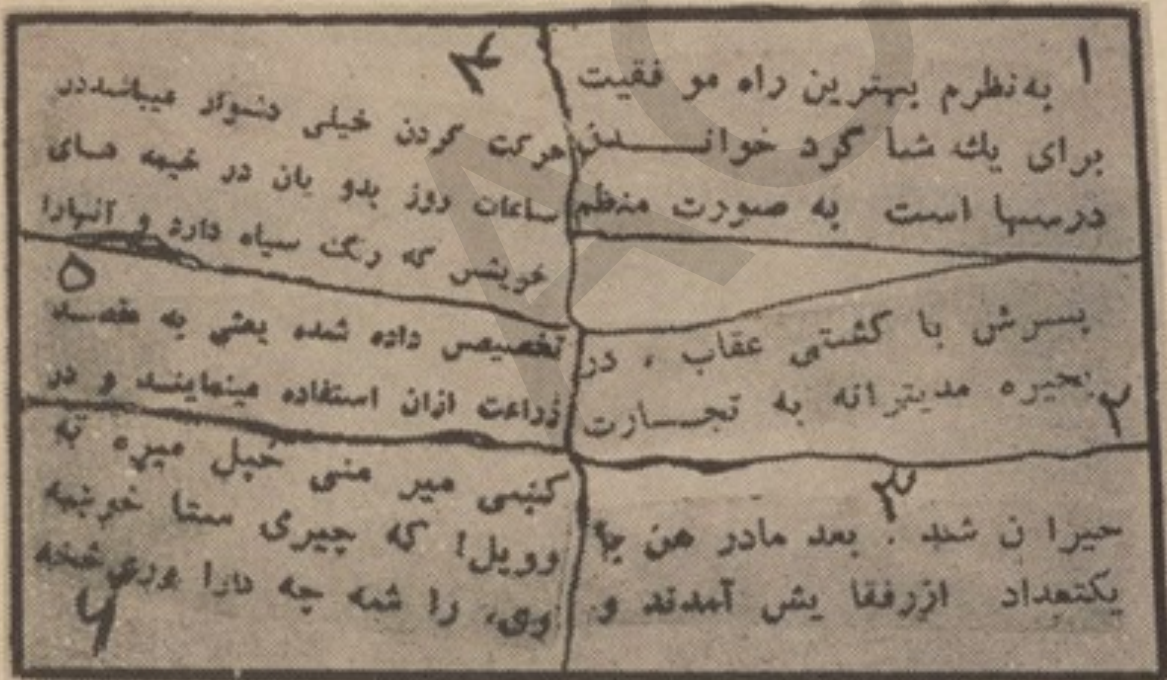 ۱
به نظرم بهترین راه مو فقیت
برای یك شا گرد خوانـــدن
درسها است به صورت منظم
پسرش با کشتی عقاب ، در
بحیره مدیترانه به تجـــارت
۲
۳
حیرا ن شد . بعد مادر من با
یکتعداد ازرفقا یش آمدند و
۴
حرکت کردن خیلی دشوار میباشددر
ساعات روز بدو یان در خیمه هـای
خویش که رنگ سیاه دارد و آنهارا
۵
تخصیص داده شده یعنی به مقصـد
زراعت ازان استفاده مینماینـد و در
کښی میر منی خپل میړه ته
وویل! که چیری ستا خوښه
وی، را شه چه
۶